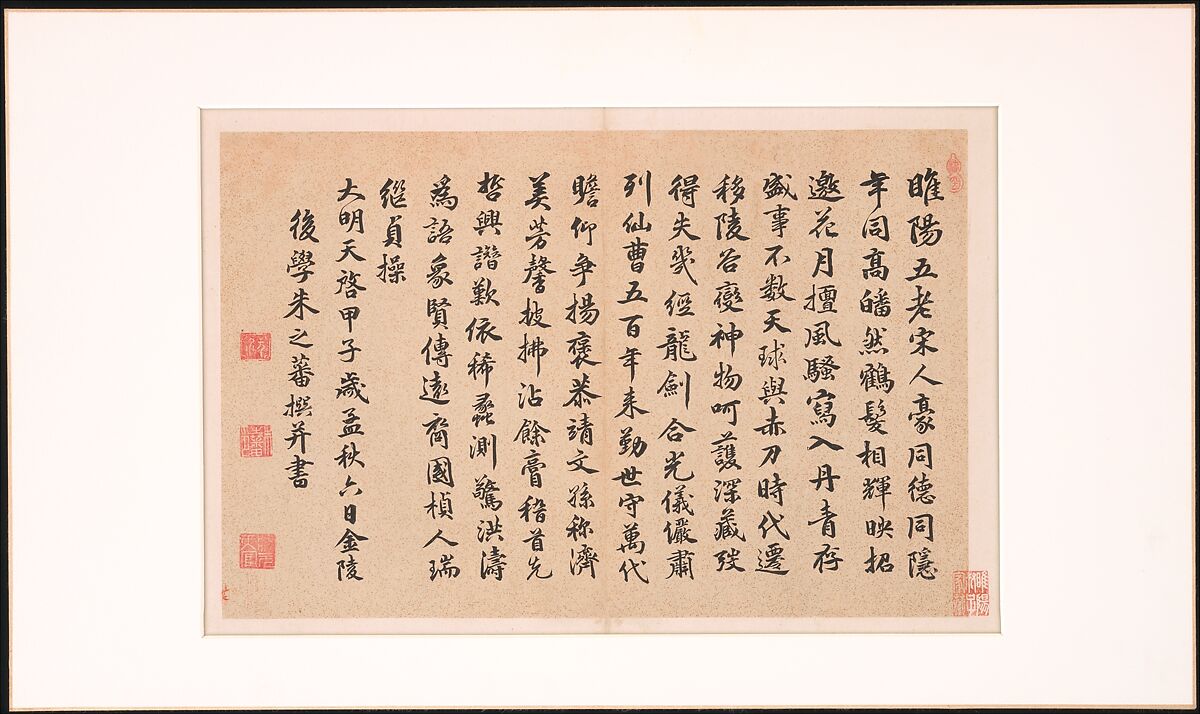 睢陽五老宋人豪同德同隱
年同高皤然鶴髮相輝映招
邀花月擅風騷寫入丹青存
盛事不数天球與赤刀時代遷
移陵谷變神物呵護深藏弢
得失幾經龍劍合光儀儼肅
列仙曹五百年来勤世守萬代
瞻仰爭揚襃恭靖文孫称濟
美芳馨披拂沾餘膏稽首先
哲興諧歎依稀蠡測驚洪濤
為語象賢傳遠裔國楨人瑞
繼貞操
大明天啓甲子歲孟秋六日金陵
後學朱之蕃撰并書